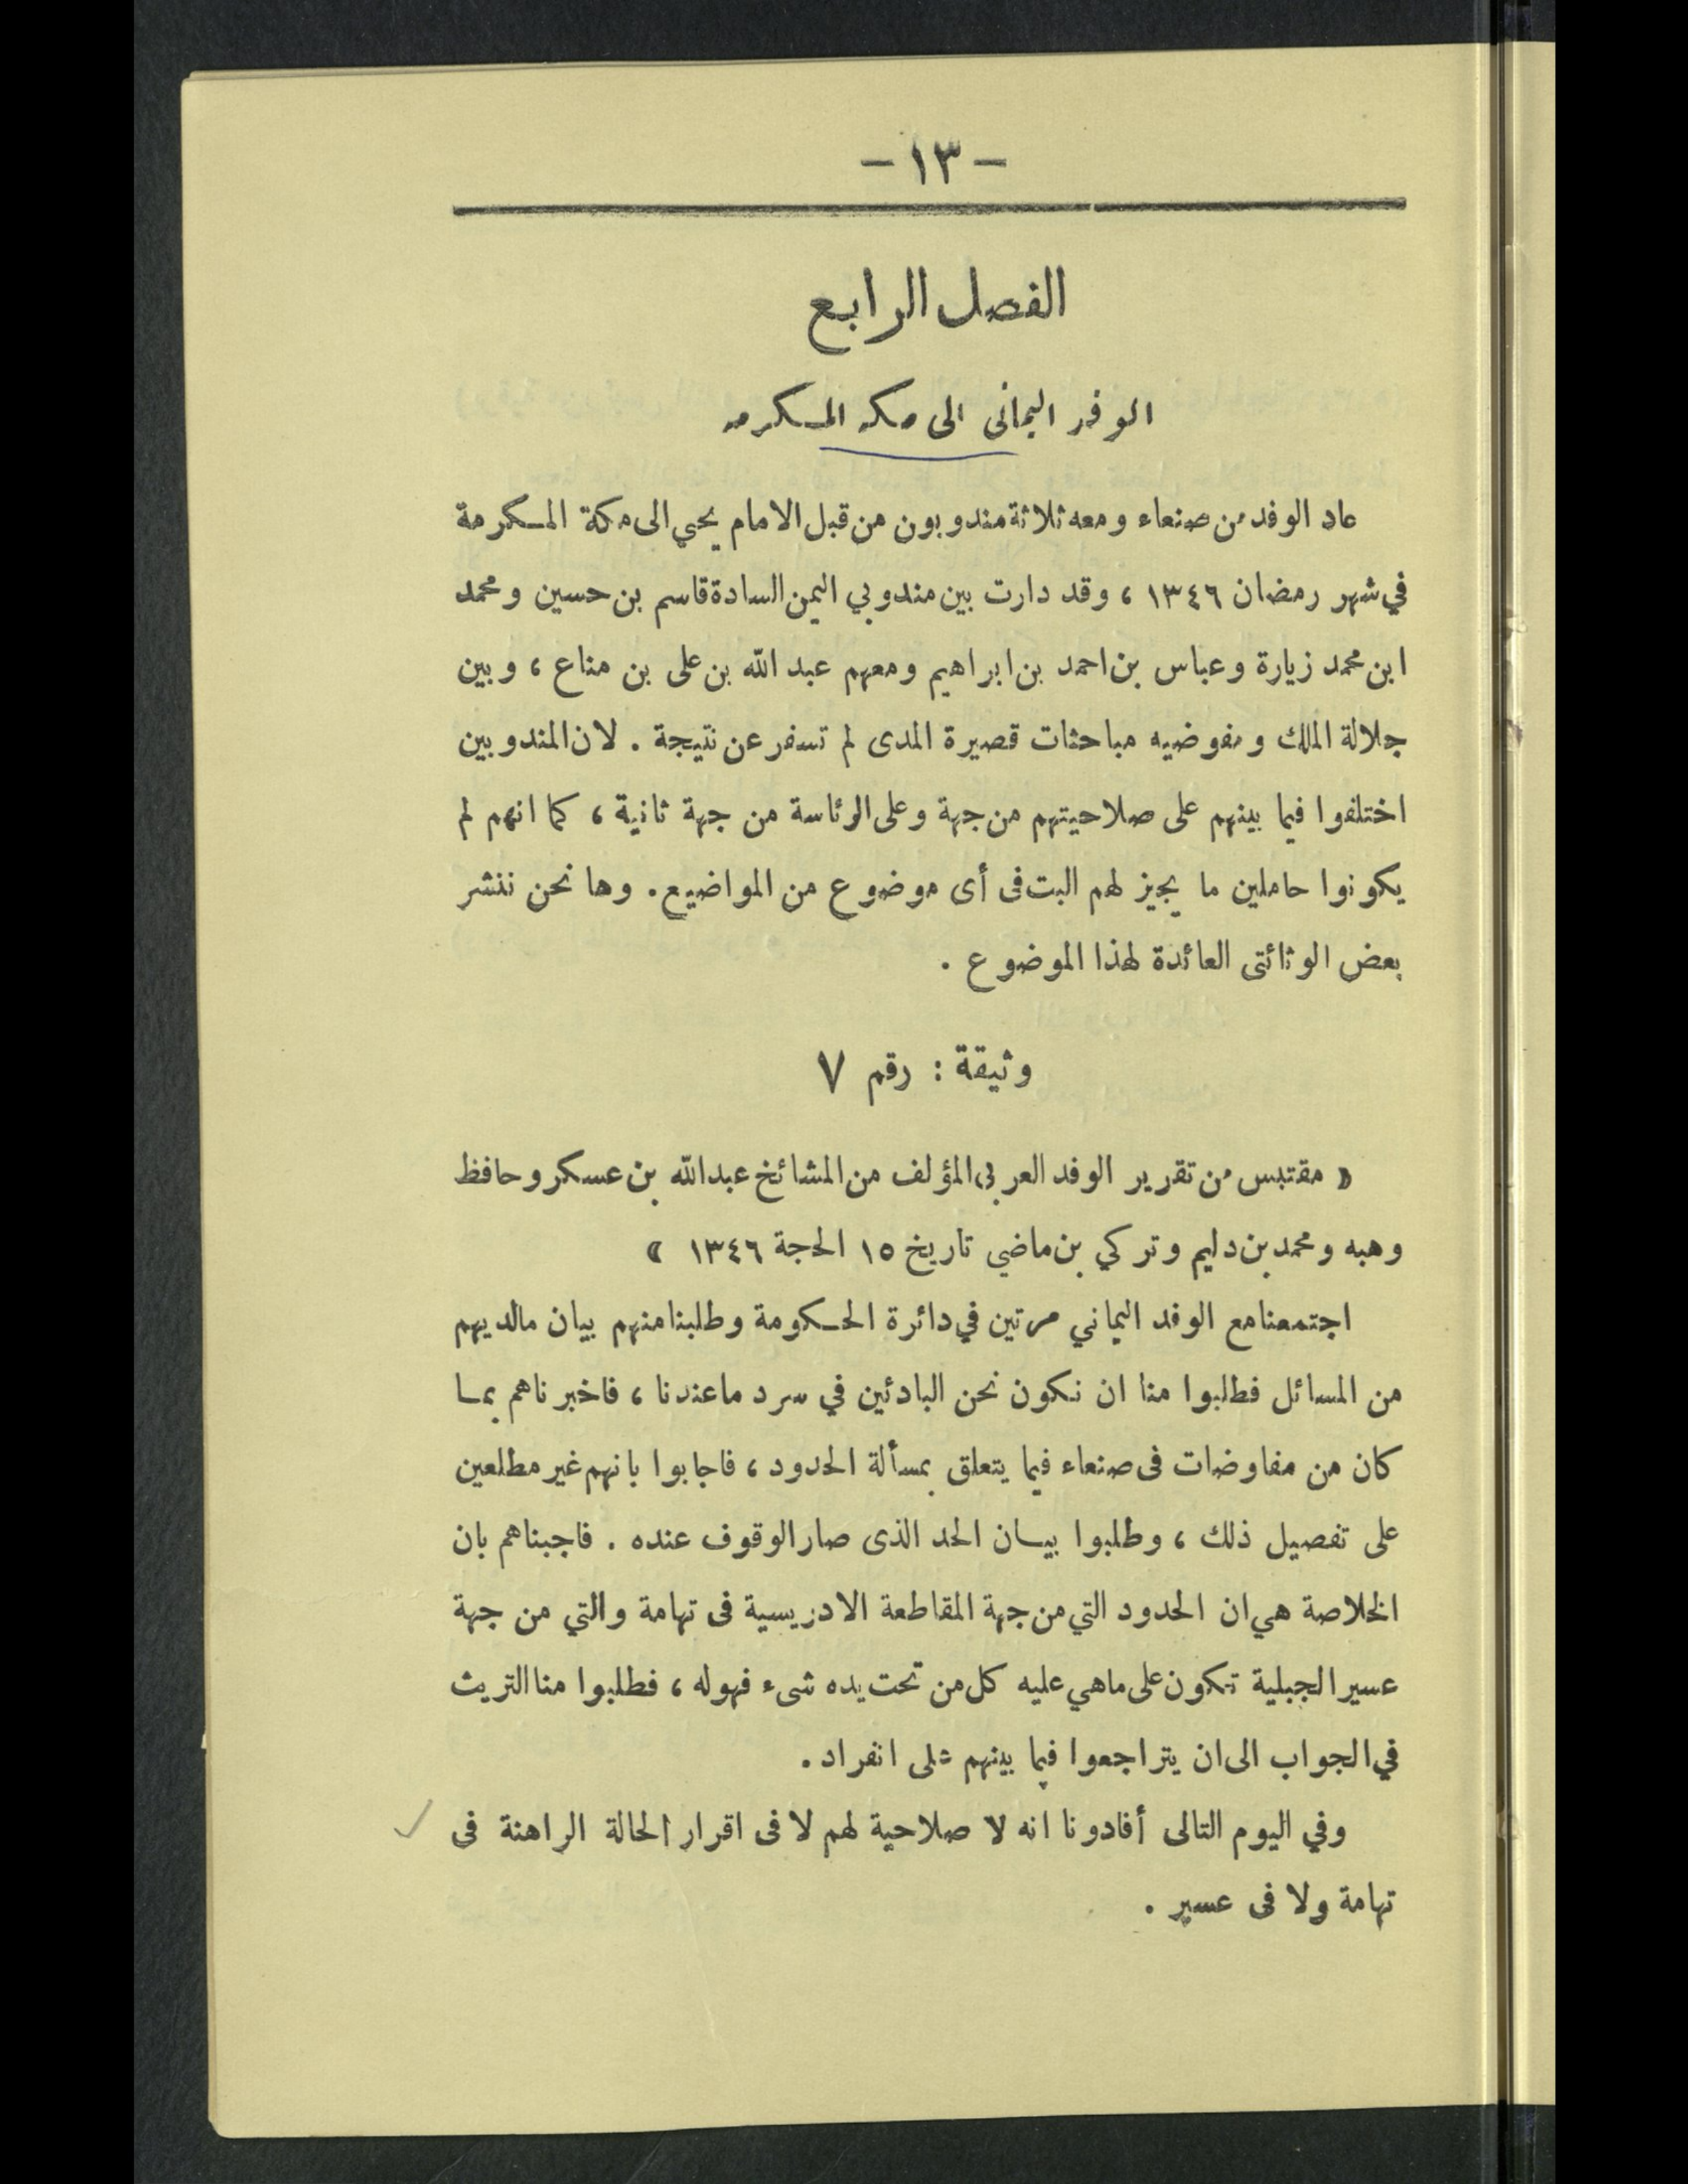 - ١٣ -
الفصل الرابع
الوفد اليمانى الى مكه المكرمه
عاد الوفد من صنعاء ومعه ثلاثة مندوبون من قبل الامام يحيي الى مكة المكرمة
في شهر رمضان ١٣٤٦ ، وقد دارت بين مندوبي اليمن السادة قاسم بن حسين ومحمد
ابن محمد زيارة وعباس بن احمد بن ابراهيم ومعهم عبد الله بن على بن مناع ، وبين
جلالة الملك ومفوضيه مباحثات قصيرة المدى لم تسفر عن نتيجة . لان المندوبين
اختلفوا فيما بينهم على صلاحيتهم من جهة وعلى الرئاسة من جهة ثانية ، كما انهم لم
يكونوا حاملين ما يجيز لهم البت فى أى موضوع من المواضيع . وها نحن ننشر
بعض الوثائق العائدة لهذا الموضوع .
وثيقة : رقم ٧
« مقتبس من تقرير الوفد العربى المؤلف من المشائخ عبدالله بن عسكر وحافظ
وهبه ومحمد بن دليم وتركي بن ماضي تاريخ ١٥ الحجة ١٣٤٦ »
اجتمعنا مع الوفد اليماني مرتين في دائرة الحكومة وطلبنا منهم بيان مالديهم
من المسائل فطلبوا منا ان نكون نحن البادئين في سرد ما عندنا ، فاخبرناهم بما
كان من مفاوضات فى صنعاء فيما يتعلق بمسألة الحدود ، فاجابوا بانهم غير مطلعين
على تفصيل ذلك ، وطلبوا بيان الحد الذى صار الوقوف عنده . فاجبناهم بان
الخلاصة هي ان الحدود التي من جهة المقاطعة الادريسية فى تهامة والتي من جهة
عسير الجبلية تكون على ماهي عليه كل من تحت يده شىء فهو له ، فطلبوا منا التريث
في الجواب الى ان يتراجعوا فيما بينهم على انفراد .
وفي اليوم التالى أفادونا انه لا صلاحية لهم لا فى اقرار الحالة الراهنة فى
تهامة ولا فى عسير .